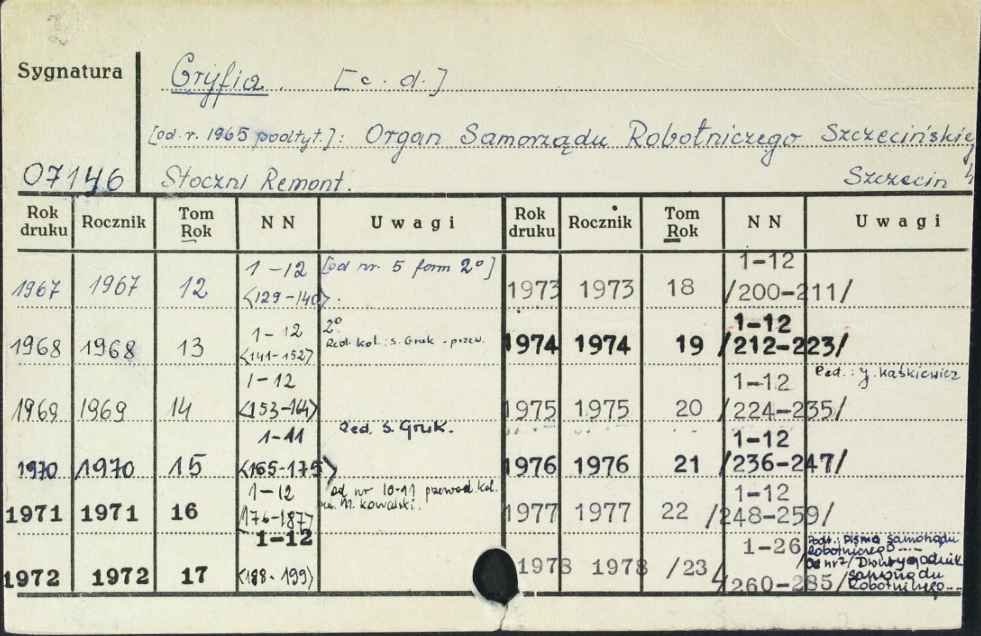 Sygnatura
Gryfia. [c. d.]
[od. r. 1965 podtyt.]: Organ Samorządu Robotniczego Szczecińskiej
07146 Stoczni Remont. Szczecin
Rok druku Rocznik Tom Rok N N Uwagi Rok druku Rocznik Tom Rok N N Uwagi
1967 1967 12 1-12 <129-140>. [od nr 5 form 2º] 1973 1973 18 1-12 /200-211/
1968 1968 13 1-12 <141-152> 2º Red. kol.: S. Gruk - przew. 1974 1974 19 1-12 /212-223/
1969 1969 14 1-12 <153-164> 1975 1975 20 1-12 /224-235/ Red.: J. Kaśkiewicz
1970 1970 15 1-11 <165-175> Red. S. Gruk. 1976 1976 21 1-12 /236-247/
1971 1971 16 1-12 <176-187> od nr 10-11 przewod kol. M. Kowalski. 1977 1977 22 1-12 /248-259/
1972 1972 17 1-12 <188-199> 1978 1978 /23/ 1-26 /260-285/ Podt.: Pismo Samorządu
Robotniczego....
Od nr 7/ Dwutygodnik
Samorządu
Robotniczego...